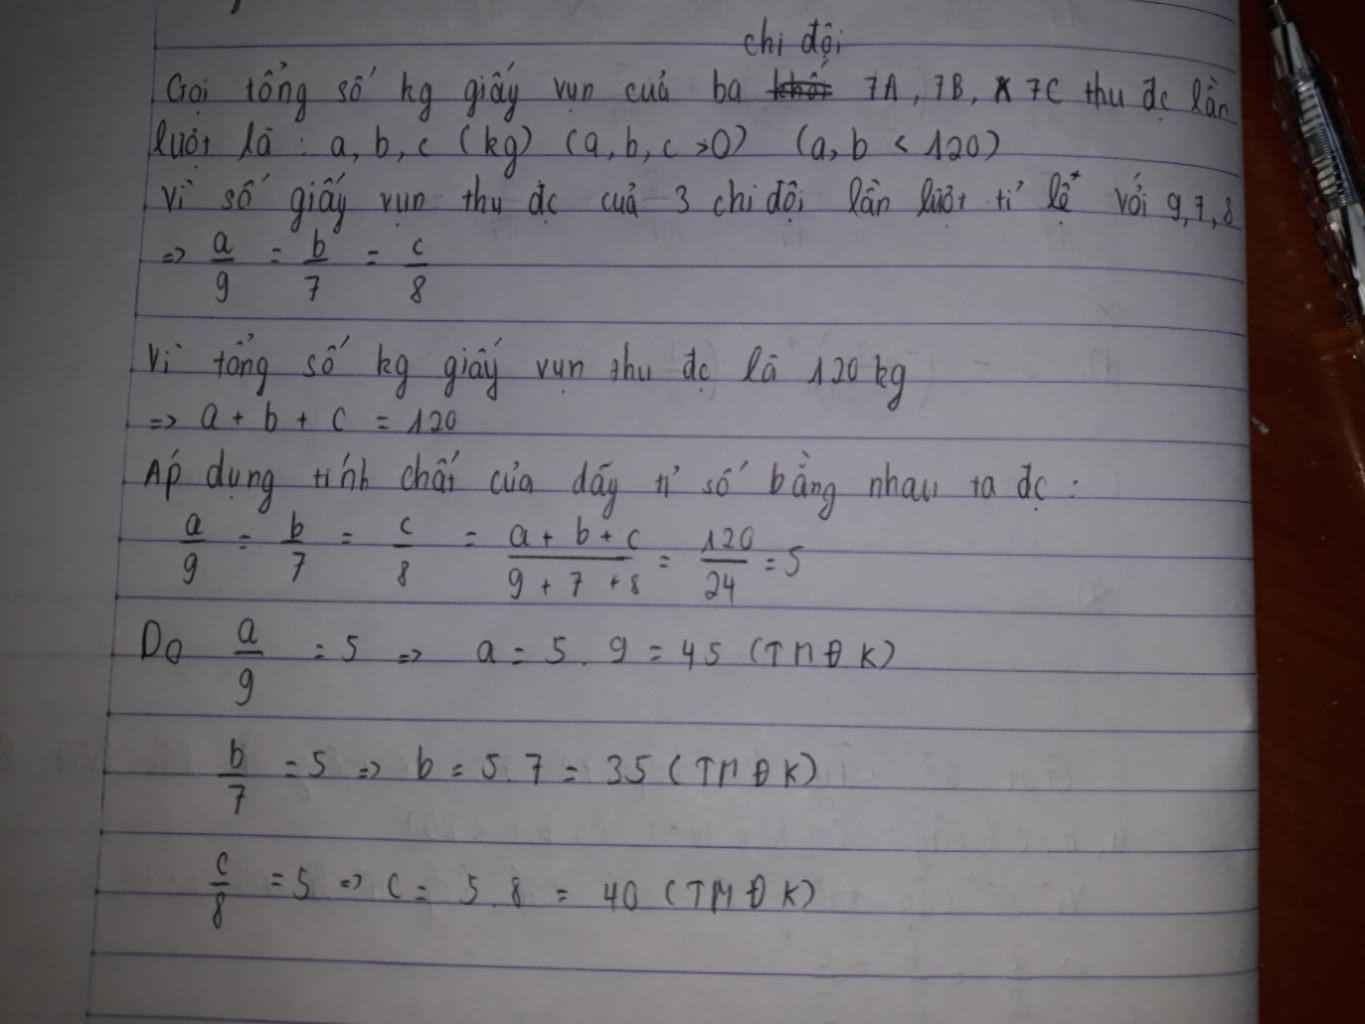 chi đội
Gọi tổng số kg giấy vụn cuả ba khối 7A, 7B, 7C thu đc lần
lượt là : a, b, c (kg) (a, b, c >0) (a, b < 120)
Vì số giấy vụn thu đc cuả 3 chi đội lần lượt tỉ lệ với 9, 7, 8
=> a/9 = b/7 = c/8
Vì tổng số kg giấy vụn thu đc là 120 kg
=> a + b + c = 120
Áp dụng tính chất của dãy tỉ số bằng nhau ta đc :
a/9 = b/7 = c/8 = (a + b + c)/(9 + 7 + 8) = 120/24 = 5
Do a/9 = 5 => a = 5 . 9 = 45 (TMĐK)
b/7 = 5 => b = 5 . 7 = 35 (TMĐK)
c/8 = 5 => c = 5 . 8 = 40 (TMĐK)